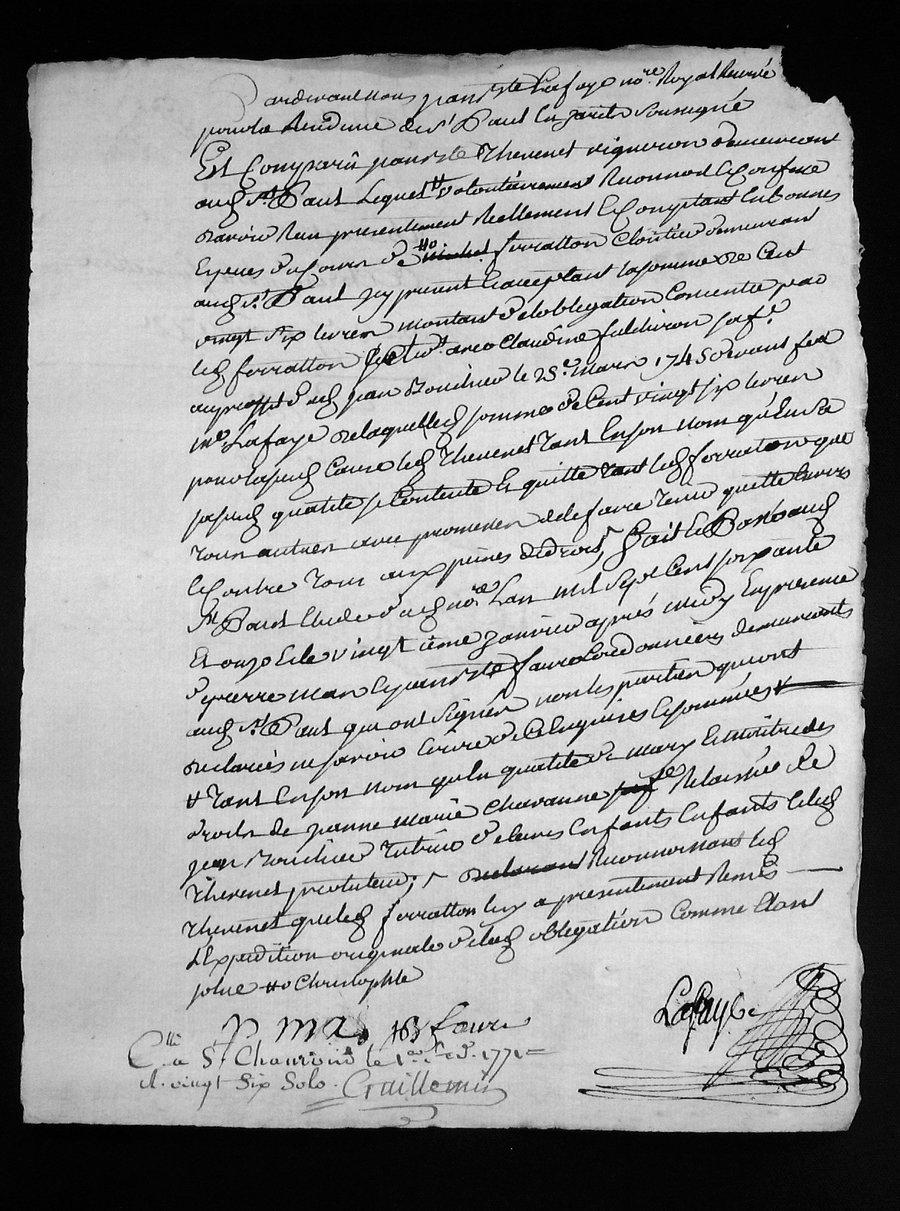 Pardevant nous Jean Bte Lafaye nore Royal Reservé
pour la Residence de St Paul en Jarest Soussigné
Est Comparû Jean Bte Thevenet vigneron demeurant
aud St Paul Lequel volontairement Reconnoit & Confesse
davoir Reçu presentement Reellement & Comptant en bonnes
Especes du Cours de #o michel ferratton Cloutier demeurant
aud St Paul icy present & acceptant la somme de Cent
vingt six livres montant de lobligation Consentie par
led ferratton solidairt avec Claudine fulchiron sa fe
au proffit dud Jean Bouchier le 25e mars 1745 devant feu
me Lafaye de laquelle somme de Cent vingt six livres
pour la sud Cause led Thevenet tant en son nom qu'en sa
susd qualité se Contente & quitte tant led ferratton que
tous autres avec promesse de le faire tenir quitte Envers
& Contre tous aux peines de droit, fait & Passé aud
St Paul Etude dud nore Lan mil Sept Cent soixante
Et onze & le vingtième Janvier après midy En presence
de pierre mas & Jean Bte faure Cordonniers demeurants
aud St Paul qui ont signés non les parties qui ont
declarées ne savoir Ecrire de ce Enquises & sommées #
# Tant en son nom qu'en qualité de mary & maitre des
droits de Jeanne marie Chavanne Relaissée de
Jean Bouchier tutrice de leurs Enfants Enfants & led
Thevenet protuteur; declarant Reconnoissant led
Thevenet que led ferratton luy a presentement Remis
L'Expedition originale de lad obligation Comme Etant
solue #o Christophle
P mas JB faure Lafaye
Clle a St Chaumond le 1er fed. 1771
R. vingt Six Sols. Graillemin